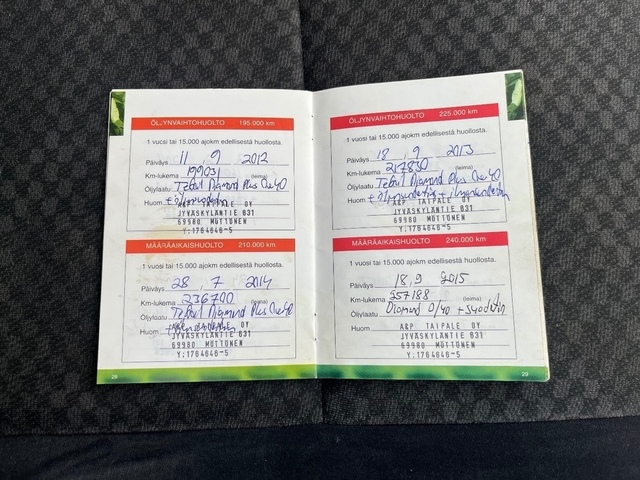 ÖLJYNVAIHTOHUOLTO 195.000 km
1 vuosi tai 15.000 ajokm edellisestä huollosta.
Päiväys 11 . 9 2012
Km-lukema 199031 (leima)
Öljylaatu
Huom
A&P TAIPALE OY
JYVÄSKYLÄNTIE 631
69980 MÖTTÖNEN
Y:1764646-5
MÄÄRÄAIKAISHUOLTO 210.000 km
1 vuosi tai 15.000 ajokm edellisestä huollosta.
Päiväys 28 . 7 2014
Km-lukema 236700 (leima)
Öljylaatu
Huom
A&P TAIPALE OY
JYVÄSKYLÄNTIE 631
69980 MÖTTÖNEN
Y:1764646-5
28
ÖLJYNVAIHTOHUOLTO 225.000 km
1 vuosi tai 15.000 ajokm edellisestä huollosta.
Päiväys 18 . 9 2013
Km-lukema 217830 (leima)
Öljylaatu
Huom
A&P TAIPALE OY
JYVÄSKYLÄNTIE 631
69980 MÖTTÖNEN
Y:1764646-5
MÄÄRÄAIKAISHUOLTO 240.000 km
1 vuosi tai 15.000 ajokm edellisestä huollosta.
Päiväys 18.9 2015
Km-lukema 257188 (leima)
Öljylaatu Diamond 0/40
Huom
A&P TAIPALE OY
JYVÄSKYLÄNTIE 631
69980 MÖTTÖNEN
Y:1764646-5
29